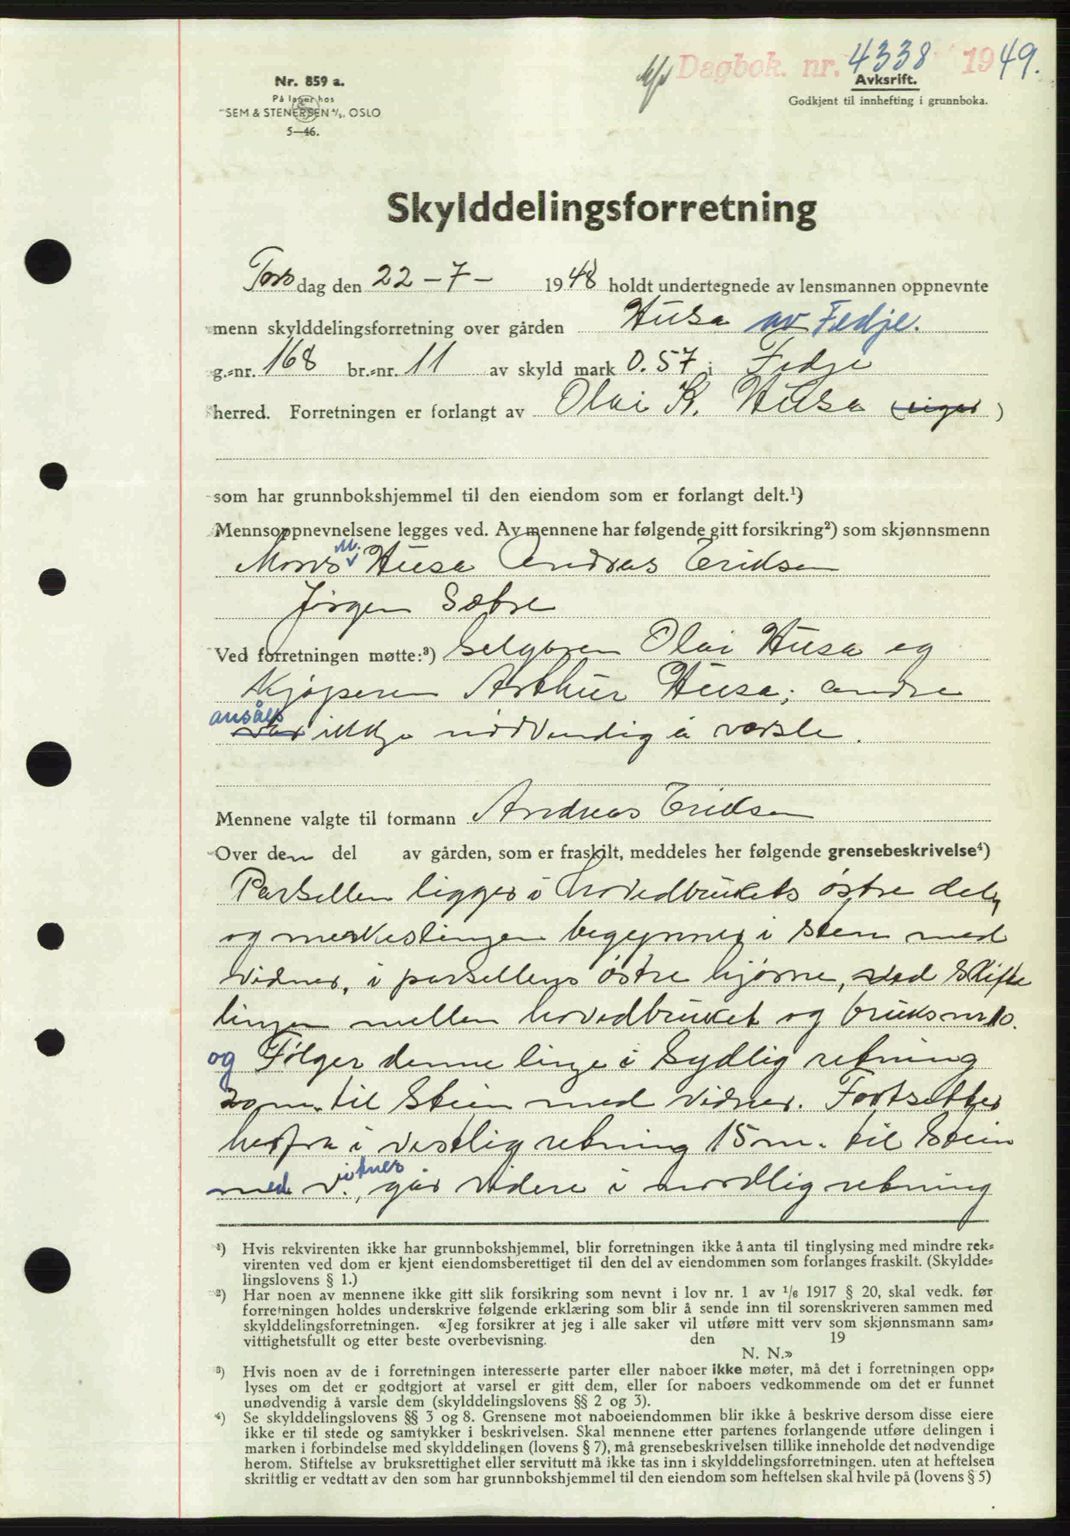 Dagbok. nr. 4338 1949.
Nr. 859 a.
På lager hos
SEM & STENERSEN A/S, OSLO
5—46.
Avksrift.
Godkjent til innhefting i grunnboka.
Skylddelingsforretning
Tors dag den 22 - 7 - 1948 holdt undertegnede av lensmannen oppnevnte
menn skylddelingsforretning over gården Husa av Fedje.
g.-nr. 168 br.-nr. 11 av skyld mark 0.57 i Fedje
herred. Forretningen er forlangt av Olai K. Husa (eiger)
som har grunnbokshjemmel til den eiendom som er forlangt delt.¹)
Mennsoppnevnelsene legges ved. Av mennene har følgende gitt forsikring²) som skjønnsmenn
M. Husa Andreas Eriksen
Jørgen Sætre
Ved forretningen møtte:³) Selgeren Olai Husa og
Kjøperen Arthur Husa; andre
ansåes var ikkje nødvendig å varsle.
Mennene valgte til formann Andreas Eriksen
Over den del av gården, som er fraskilt, meddeles her følgende grensebeskrivelse⁴)
Parsellen ligger i hovedbrukets østre del,
og merkeslinjen begynner i sten med
vidner, i parsellens østre hjørne, ved skifte
linjen mellem hovedbruket og bruksnr 10.
og Følger denne linje i sydlig retning
20 m. til Stein med vidner. Fortsetter
herfra i vestlig retning 15 m. til Stein
med vitner, går videre i nordlig retning
¹) Hvis rekvirenten ikke har grunnbokshjemmel, blir forretningen ikke å anta til tinglysing med mindre rek-
virenten ved dom er kjent eiendomsberettiget til den del av eiendommen som forlanges fraskilt. (Skyldde-
lingslovens § 1.)
²) Har noen av mennene ikke gitt slik forsikring som nevnt i lov nr. 1 av 1/6 1917 § 20, skal vedk. før
forretningen holdes underskrive følgende erklæring som blir å sende inn til sorenskriveren sammen med
skylddelingsforretningen. «Jeg forsikrer at jeg i alle saker vil utføre mitt verv som skjønnsmann sam-
vittighetsfullt og etter beste overbevisning. den 19
N. N.»
³) Hvis noen av de i forretningen interesserte parter eller naboer ikke møter, må det i forretningen opp-
lyses om det er godtgjort at varsel er gitt dem, eller for naboers vedkommende om det er funnet
unødvendig å varsle dem (skylddelingslovens §§ 2 og 3).
⁴) Se skylddelingslovens §§ 3 og 8. Grensene mot naboeiendommen blir ikke å beskrive dersom disse eiere
ikke er til stede og samtykker i beskrivelsen. Skal mennene etter partenes forlangende utføre delingen i
marken i forbindelse med skylddelingen (lovens § 7), må grensebeskrivelsen tillike inneholde det nødvendige
herom. Stiftelse av bruksrettighet eller servitutt må ikke tas inn i skylddelingsforretningen. uten at heftelsen
skriftlig er vedtatt av den som har grunnbokshjemmel til den eiendom som heftelsen skal hvile på (lovens § 5)